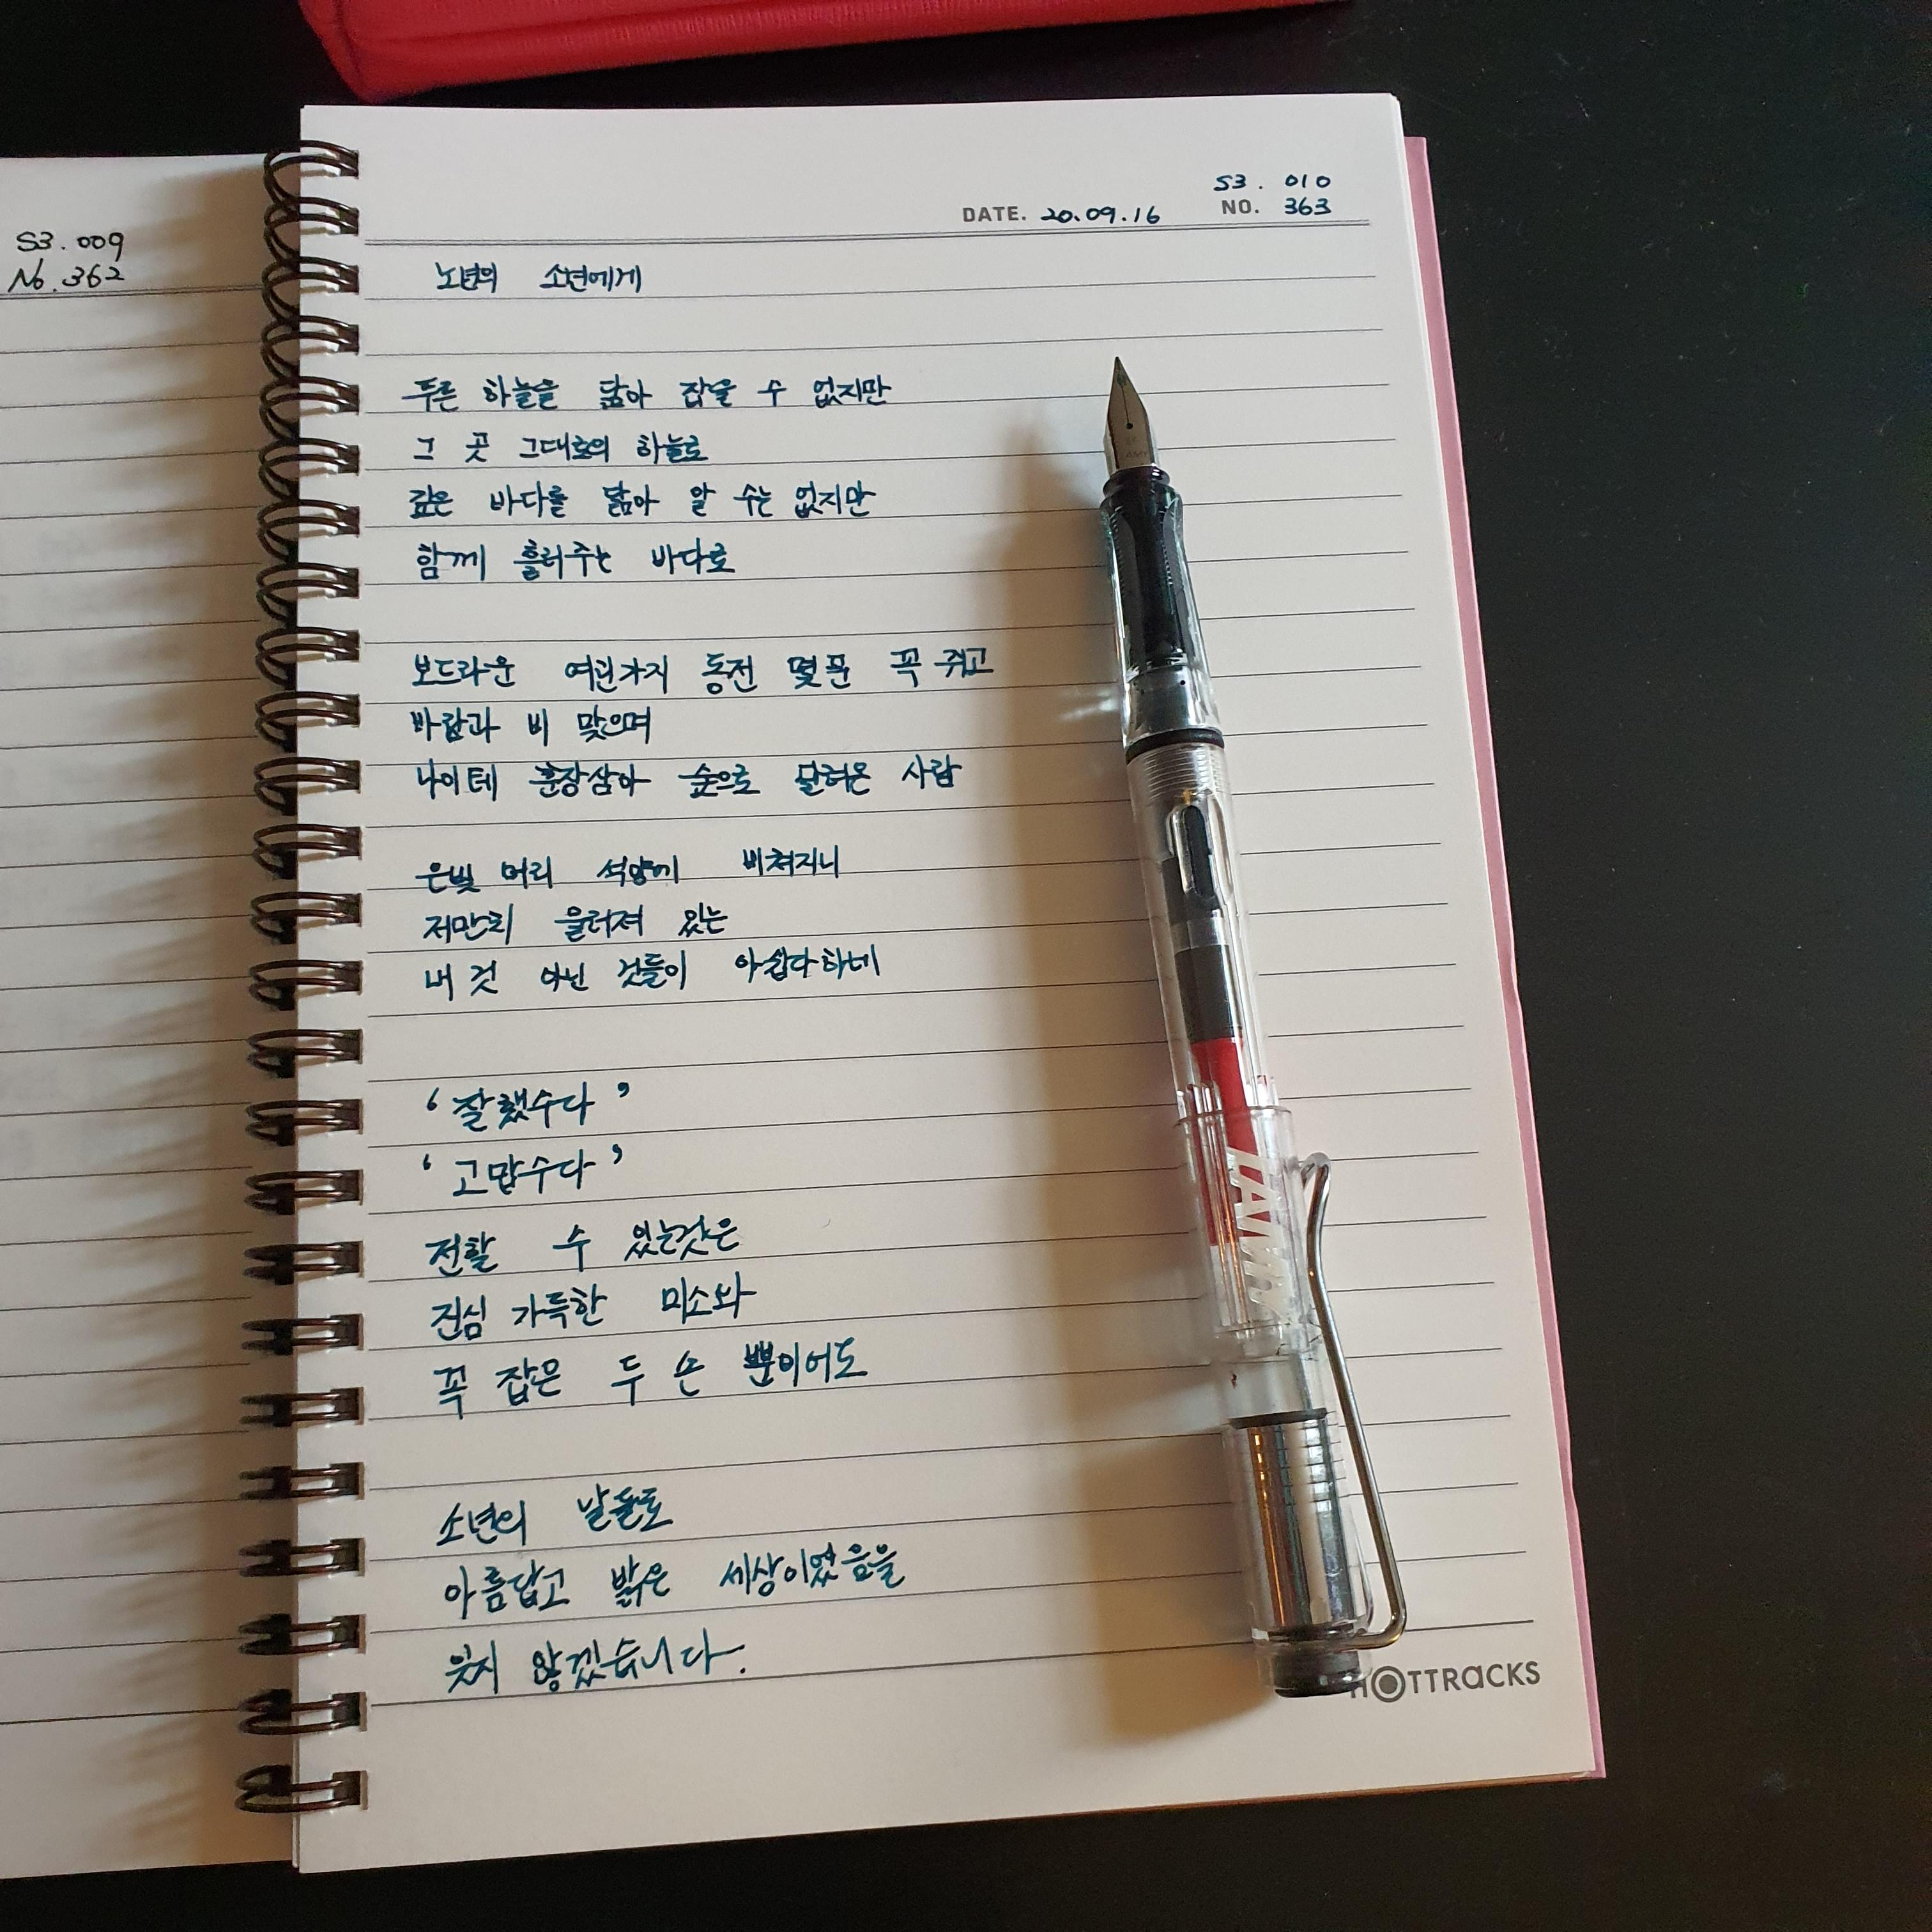 S3.009
No.362
S3. 010
DATE. 20.09.16 NO. 363
노년의 소년에게
푸른 하늘을 닮아 잡을 수 없지만
그 곳 그대로의 하늘로
깊은 바다를 닮아 알 수는 없지만
함께 흘러주는 바다로
보드라운 여린가지 동전 몇푼 꼭 쥐고
바람과 비 맞으며
나이테 훈장삼아 숲으로 달려온 사람
은빛 머리 석양에 비쳐지니
저만치 울러져 있는
내 것 아닌 것들이 아쉽다하네
‘잘했수다’
‘고맙수다’
전할 수 있는것은
진심 가득한 미소와
꼭 잡은 두 손 뿐이어도
소년의 날들로
아름답고 밝은 세상이었음을
잊지 않겠습니다.
LAMY
HOTTRACKS